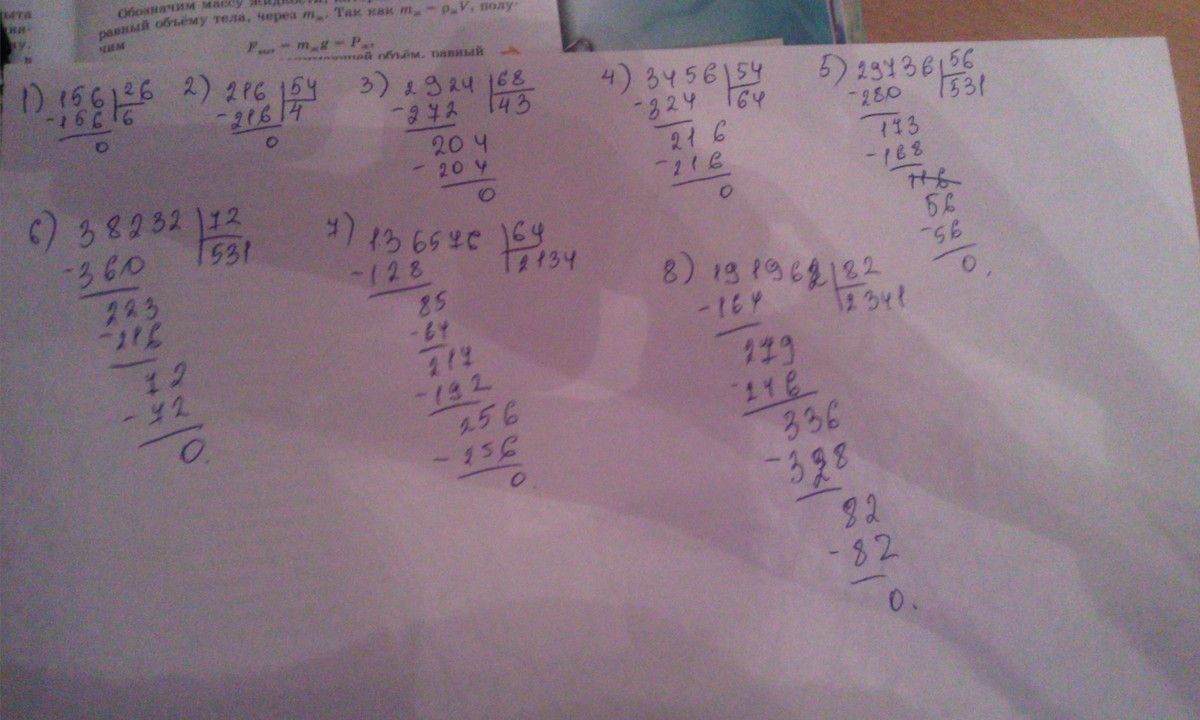 ыта
Обозначим массу жидкости,
равный объёму тела, через mж. Так как mж = ρжV, полу-
чим
Fвыт = mжg = Pж,
объём, равный
1) 156 | 26
-156 | 6
0
2) 216 | 54
-216 | 4
0
3) 2924 | 68
-272 | 43
204
-204
0
4) 3456 | 54
-324 | 64
216
-216
0
5) 29736 | 56
-280 | 531
173
-168
56
-56
0.
6) 38232 | 72
-360 | 531
223
-216
72
-72
0.
7) 136576 | 64
-128 | 2134
85
-64
217
-192
256
-256
0.
8) 191962 | 82
-164 | 2341
279
-246
336
-328
82
-82
0.